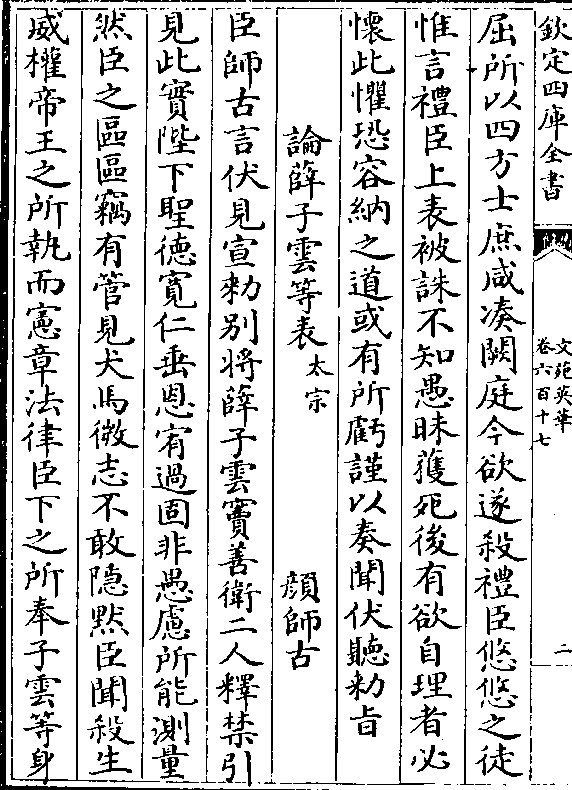 欽定四庫全書
文苑英華
卷六百十七
二
屈所以四方士庶咸凑闕庭今欲遂殺禮臣悠悠之徒
惟言禮臣上表被誅不知愚昧獲死後有欲自理者必
懷此懼恐容納之道或有所虧謹以奏聞伏聽勑㫖
論薛子雲等表太宗 顔師古
臣師古言伏見宣勑别將薛子雲竇善衛二人釋禁引
見此實陛下聖德寛仁垂恩宥過固非愚慮所能測量
然臣之區區竊有管見犬馬微志不敢隠黙臣聞殺生
威權帝王之所執而憲章法律臣下之所奉子雲等身